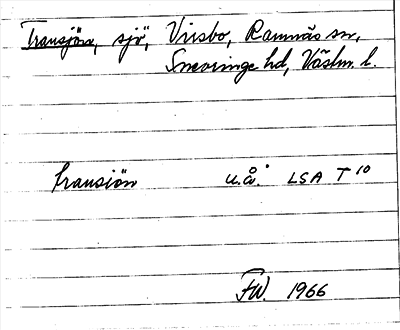 Transjön, sjö, Virsbo, Ramnäs sn,
Snevringe hd, Västm. l.
Transiön u.å. LSA T 10
FW. 1966